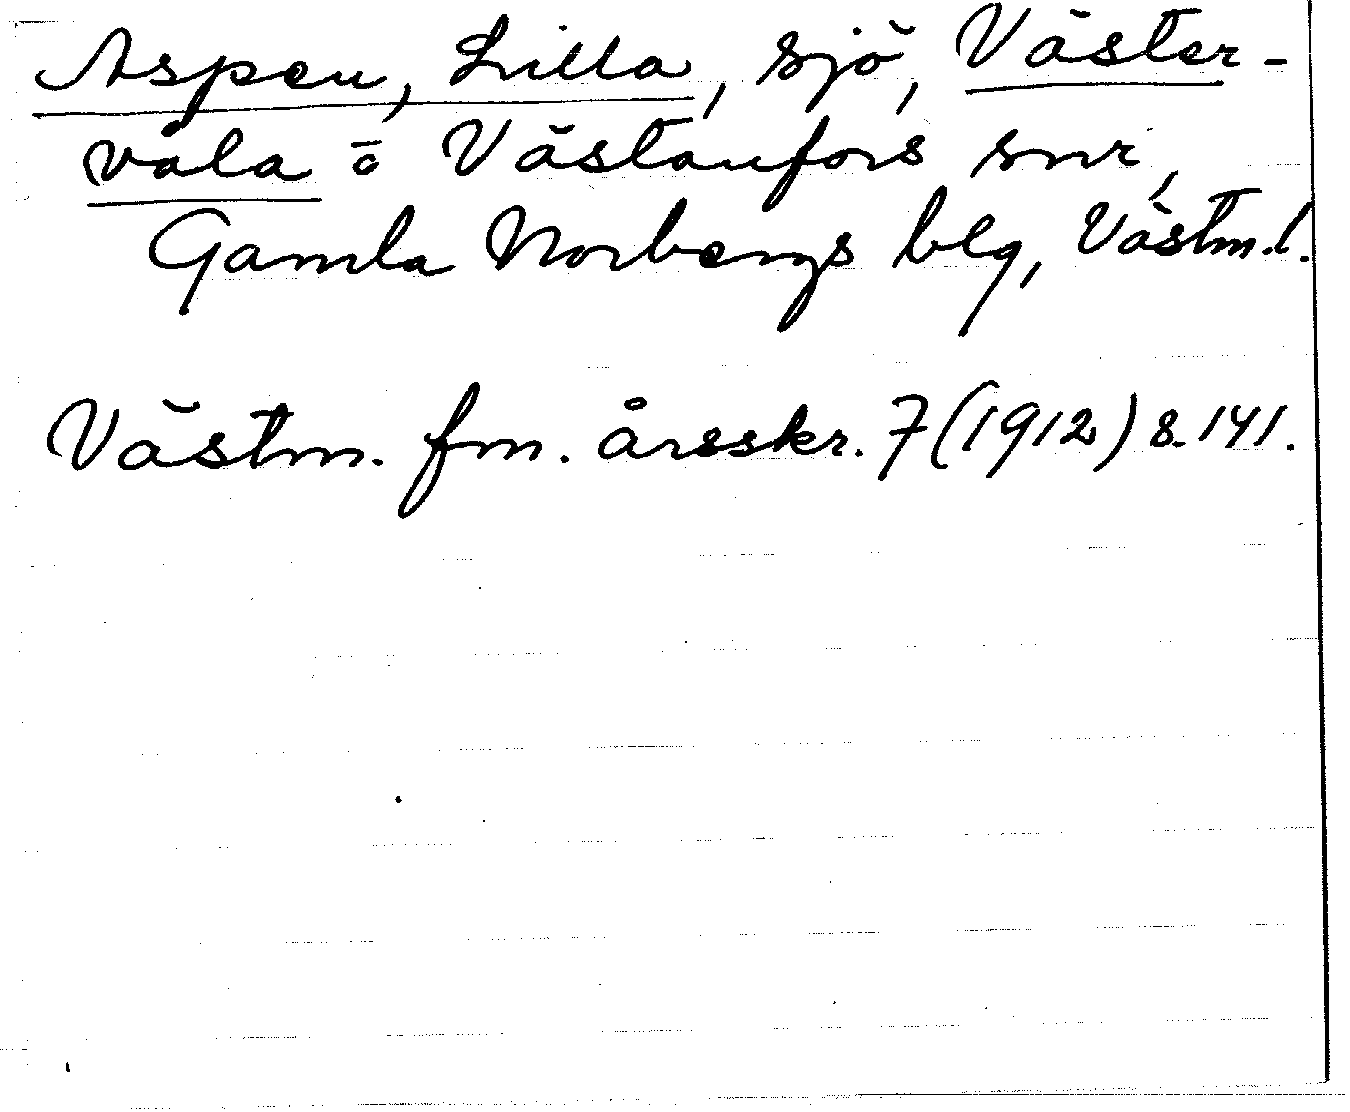 Aspen, Lilla, sjö, Väster-
våla o Västanfors snr,
Gamla Norbergs blg, Västm.l.
Västm. fm. årsskr. 7 (1912) s. 141.